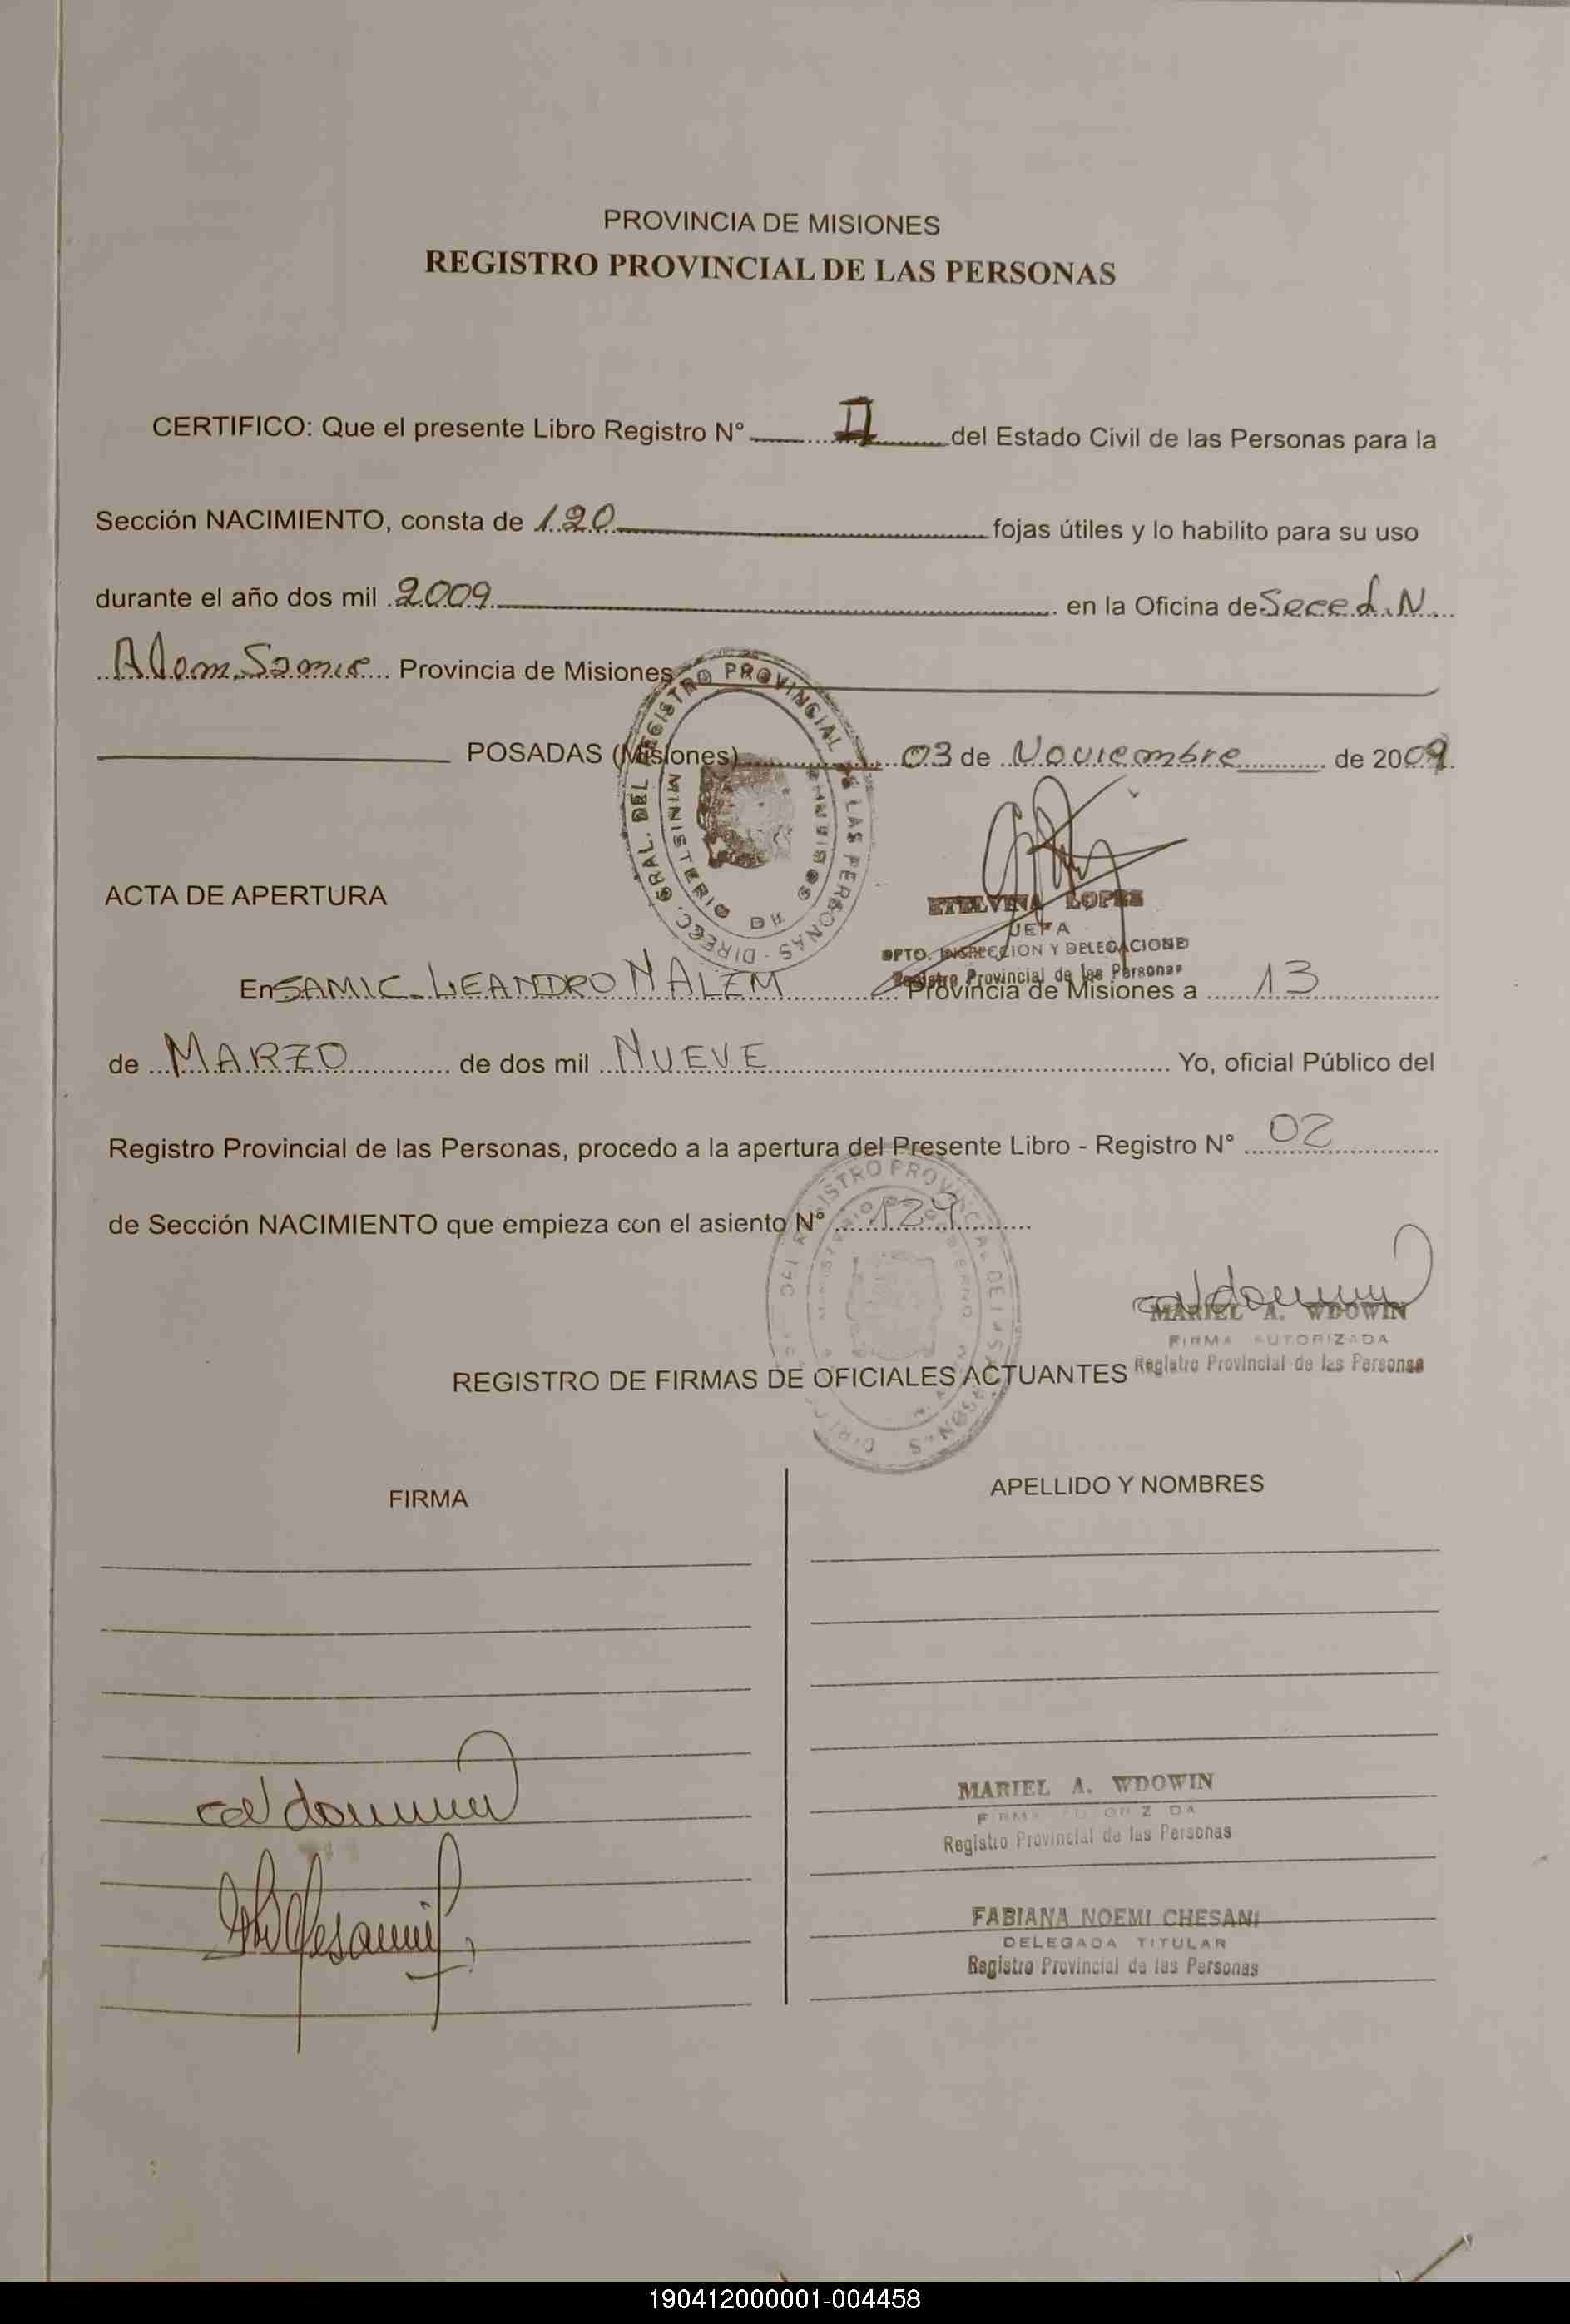 PROVINCIA DE MISIONES
REGISTRO PROVINCIAL DE LAS PERSONAS
CERTIFICO: Que el presente Libro Registro N° II del Estado Civil de las Personas para la
Sección NACIMIENTO, consta de 120 fojas útiles y lo habilito para su uso
durante el año dos mil 2009 en la Oficina de Secc L.N.
Alem Samic Provincia de Misiones
POSADAS (Misiones) 03 de Noviembre de 2009.
ETELVINA LOPEZ
JEFA
ACTA DE APERTURA
DPTO. INSPECCION Y DELEGACIONES
Registro Provincial de las Personas
En SAMIC LEANDRO N ALEM Provincia de Misiones a 13
de MARZO de dos mil NUEVE Yo, oficial Público del
Registro Provincial de las Personas, procedo a la apertura del Presente Libro - Registro N° 02
de Sección NACIMIENTO que empieza con el asiento N° 129
MARIEL A. WDOWIN
FIRMA AUTORIZADA
Registro Provincial de las Personas
REGISTRO DE FIRMAS DE OFICIALES ACTUANTES
FIRMA
APELLIDO Y NOMBRES
MARIEL A. WDOWIN
FIRMA AUTORIZADA
Registro Provincial de las Personas
FABIANA NOEMI CHESANI
DELEGADA TITULAR
Registro Provincial de las Personas
190412000001-004458